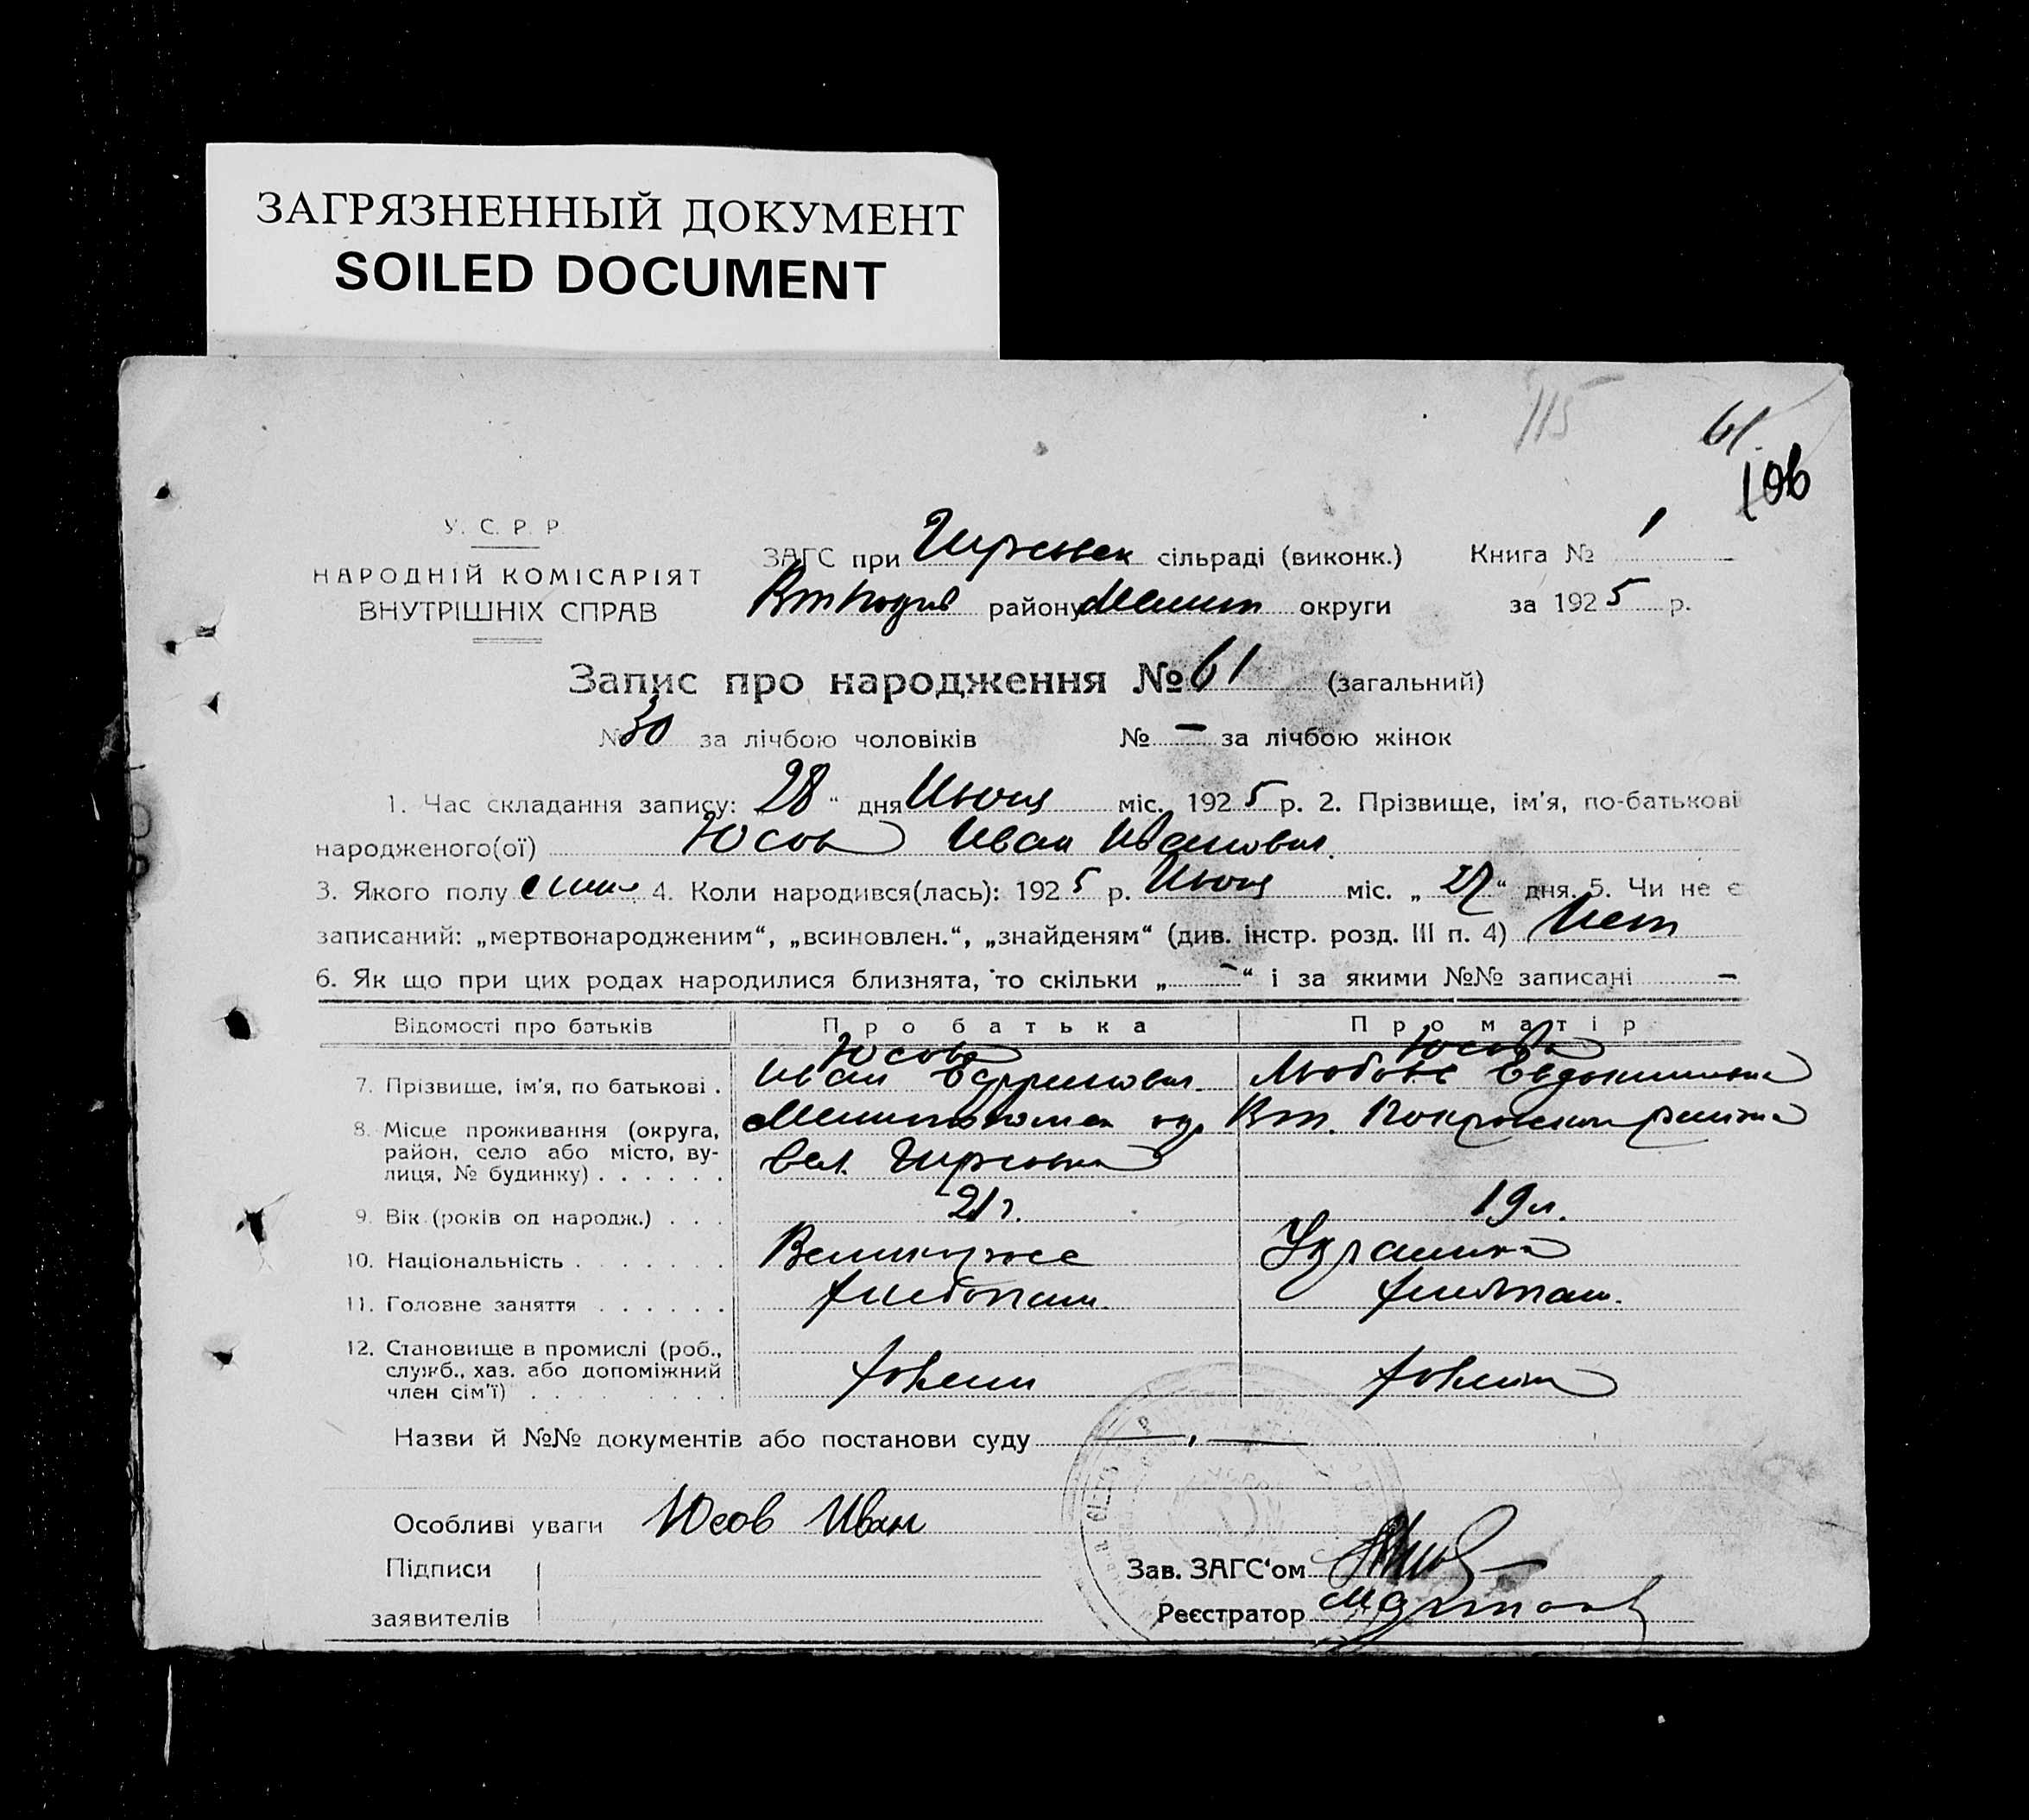 ЗАГРЯЗНЕННЫЙ ДОКУМЕНТ
SOILED DOCUMENT
115
61.
106
У. С. Р. Р.
НАРОДНІЙ КОМІСАРІЯТ
ВНУТРІШНІХ СПРАВ
ЗАГС при сільраді (виконк.) Книга № 1
району округи за 1925 р.
Запис про народження № 61 (загальний)
№ 30 за лічбою чоловіків № - за лічбою жінок
1. Час складання запису: „28“ дня Июня міс. 1925 р. 2. Прізвище, ім'я, по-батькові
народженого(ої) Юсов Иван Иванович.
3. Якого полу 4. Коли народився(лась): 1925 р. Июня міс. „27“ дня. 5. Чи не є
записаний: „мертвонародженим“, „всиновлен.“, „знайденям“ (див. інстр. розд. III п. 4) Нет
6. Як що при цих родах народилися близнята, то скільки „-“ і за якими №№ записані -
Відомості про батьків Про батька Про матір
Юсов Юсова
7. Прізвище, ім'я, по батькові . Иван Любовь Евдокимовна
8. Місце проживання (округа,
район, село або місто, ву-
лиця, № будинку) . . . . . .
9. Вік (років од народж.) . . . 21 г. 19 л.
10. Національність . . . . . . . Великоросс Украинка
11. Головне заняття . . . . . . хлебопаш. хлебопаш.
12. Становище в промислі (роб.,
служб., хаз. або допоміжний
член сім'ї) . . . . . . . . . хозяин хозяйка
Назви й №№ документів або постанови суду
Особливі уваги Юсов Иван
Підписи
заявителів
Зав. ЗАГС'ом
Реєстратор